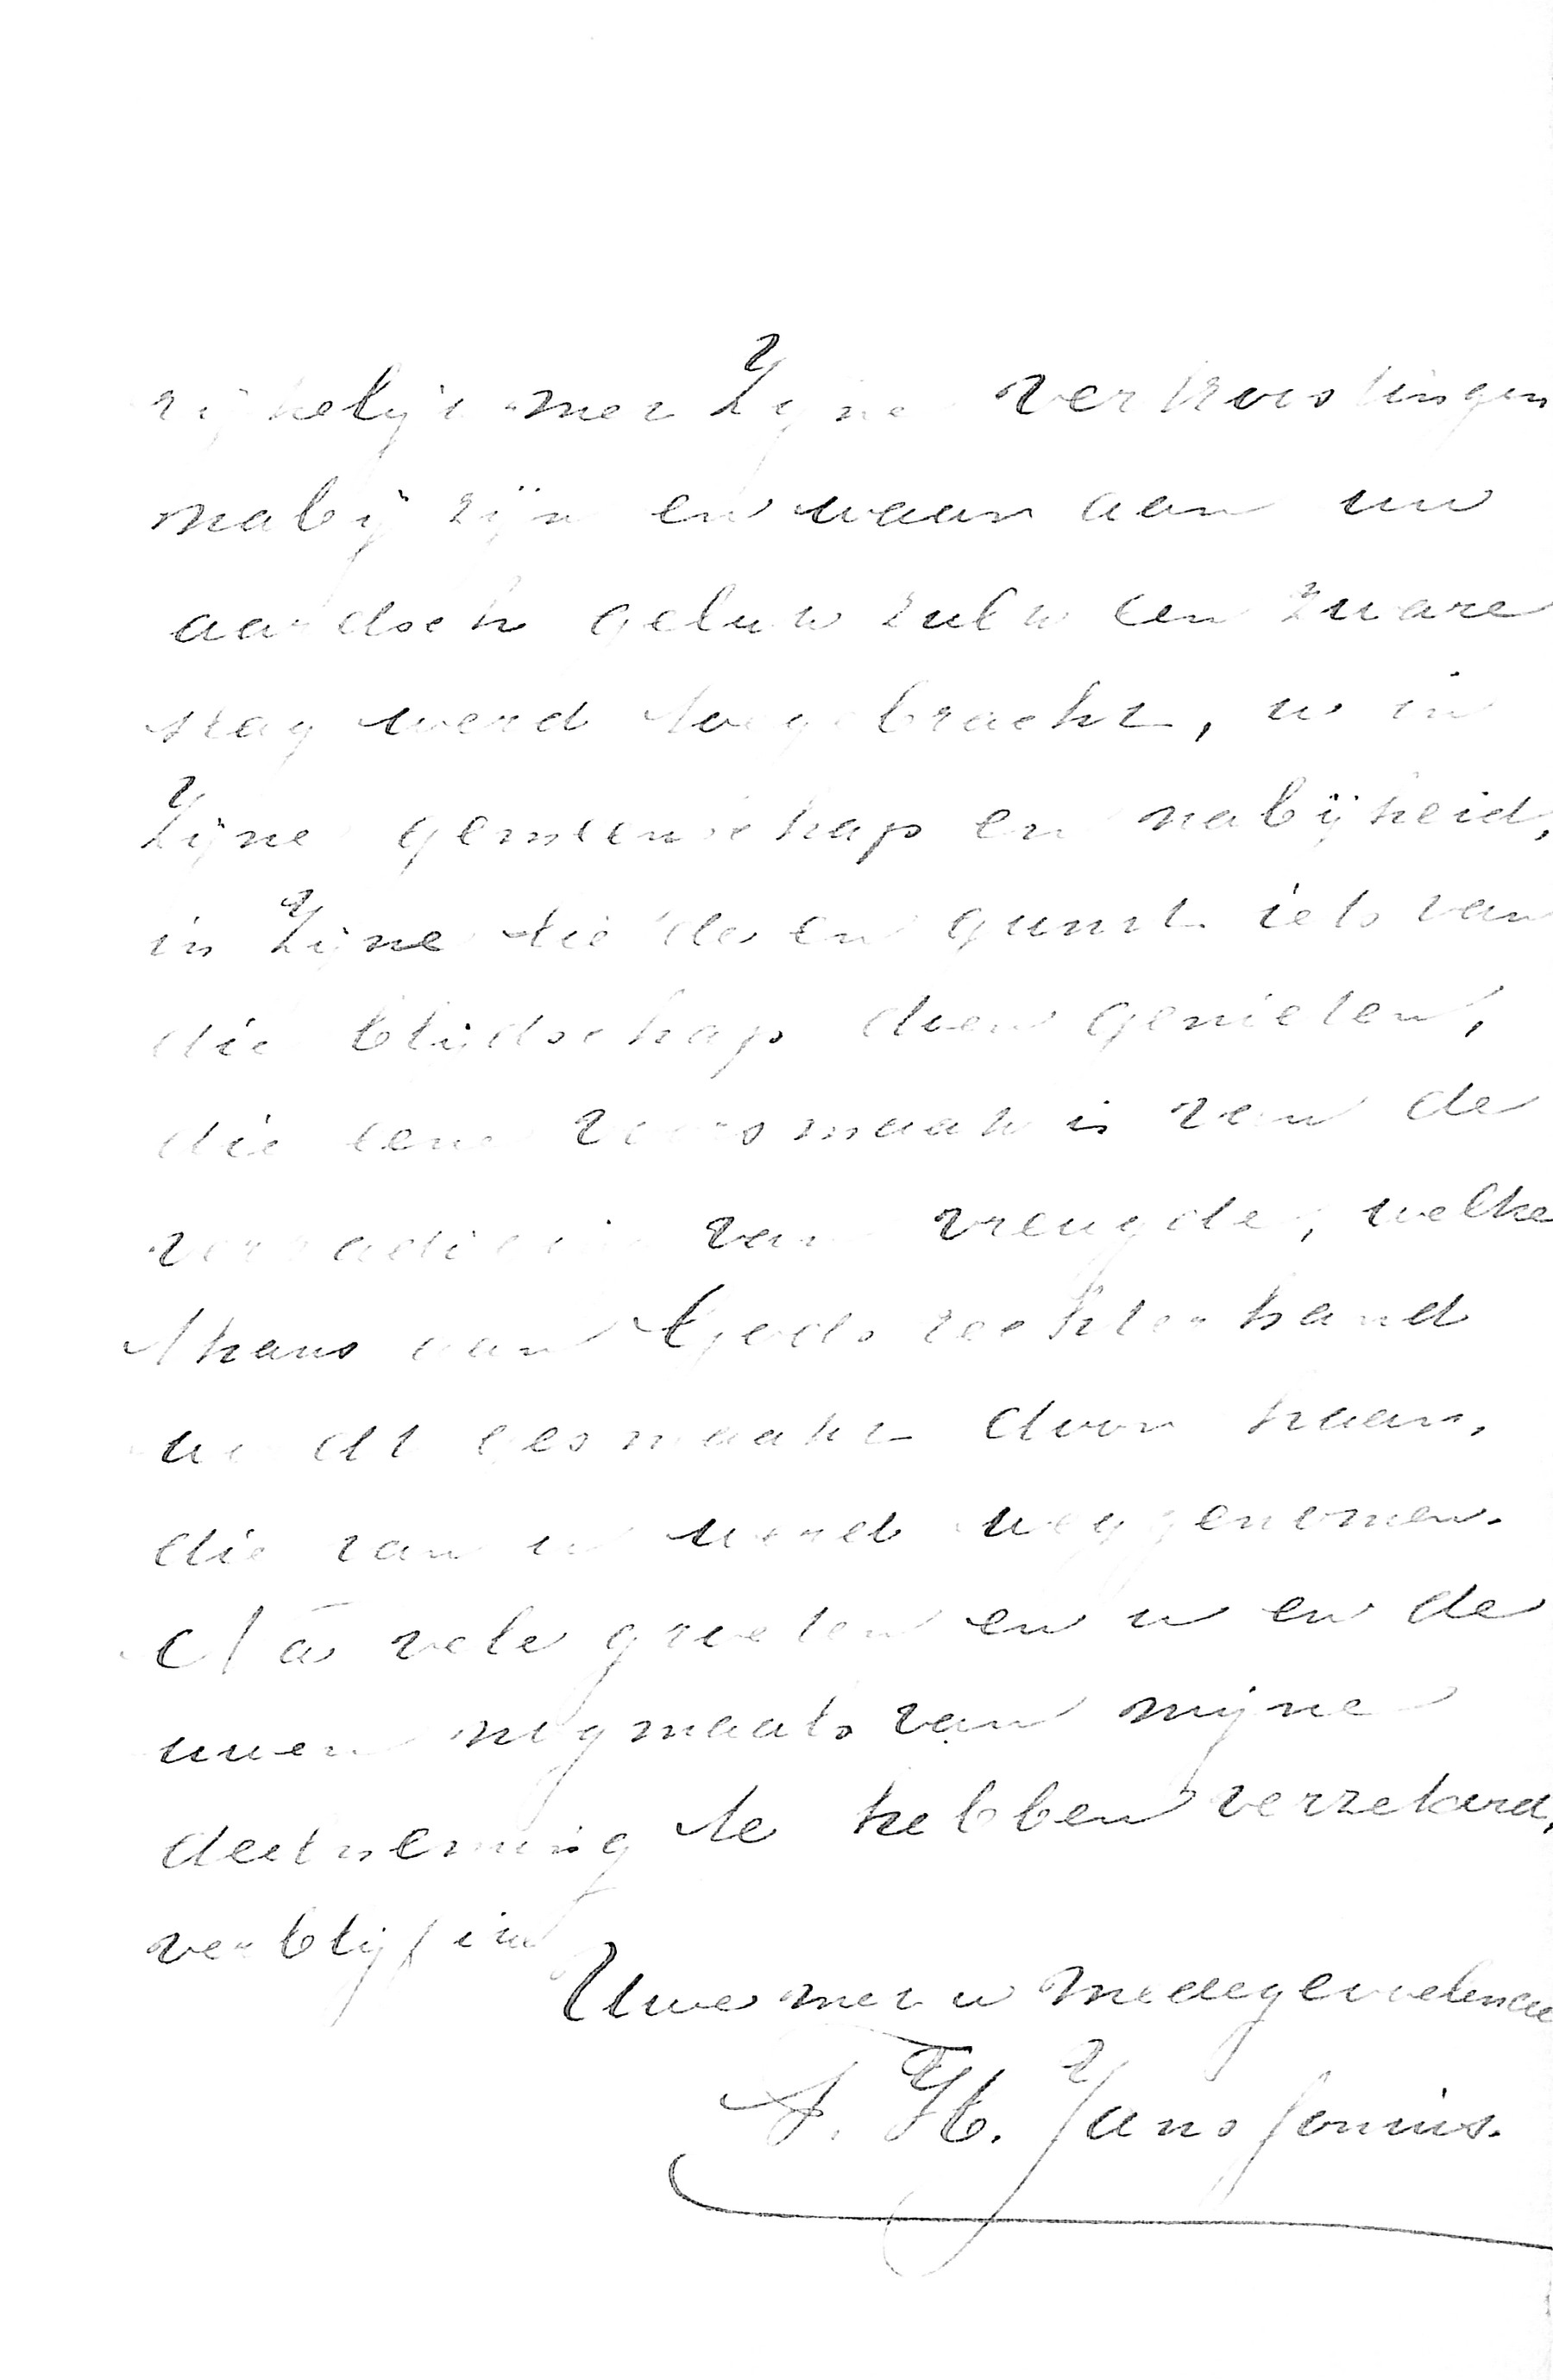 rijkelijk met Zijne vertroostingen
nabij zijn en waar aan uw
aardsch geluk zulk een zware
slag werd toegebracht, u in
Zijne gemeenschap en nabijheid,
in Zijne liefde en gunst iets van
die blijdschap doen genieten,
die een voorsmaak is van de
verzadiging van vreugde, welke
thans aan Gods rechterhand
wordt gesmaakt door haar,
die van u werd weggenomen.
Na vele groeten en u en de
uwen nogmaals van mijne
deelneming te hebben verzekerd,
verblijf ik
Uwe met u medegevoelende
H. Jansonius.